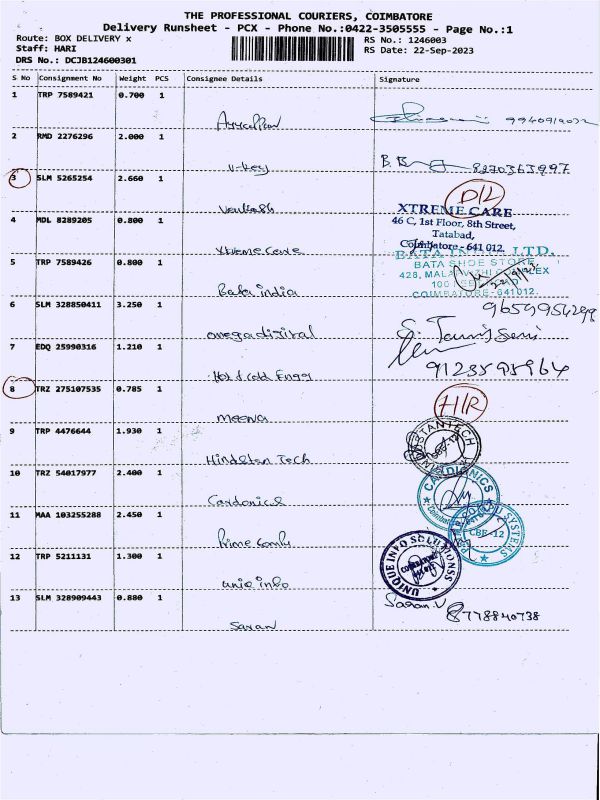 THE PROFESSIONAL COURIERS, COIMBATORE
Delivery Runsheet - PCX - Phone No.:0422-3505555 - Page No.:1
Route: BOX DELIVERY x RS No.: 1246003
Staff: HARI RS Date: 22-Sep-2023
DRS No.: DCJB124600301
S No Consignment No Weight PCS Consignee Details Signature
1 TRP 7589421 0.700 1
2 RMD 2276296 2.000 1
V-key
3 SLM 5265254 2.660 1
Venkash D/L
4 MDL 8289205 0.800 1
XTREME CARE
46 C, 1st Floor, 8th Street,
Tatabad,
Coimbatore - 641 012.
Xtreme Care
5 TRP 7589426 0.800 1
BATA INDIA LTD.
BATA SHOE STORE
COIMBATORE-641012.
Bata india
6 SLM 328850411 3.250 1
omega digital
7 EDQ 25990316 1.210 1
Hot & cold Engg 9123595964
8 TRZ 275107535 0.785 1
meena H/R
9 TRP 4476644 1.930 1
Hindstan Tech
10 TRZ 54017977 2.400 1
CARDIONICS
11 MAA 103255288 2.450 1
SYSTEMS
CBE-12
12 TRP 5211131 1.300 1
UNIQUE INFO SOLUTIONSS
uniq info
13 SLM 328909443 0.880 1
Saran.V
8778840738
Saran